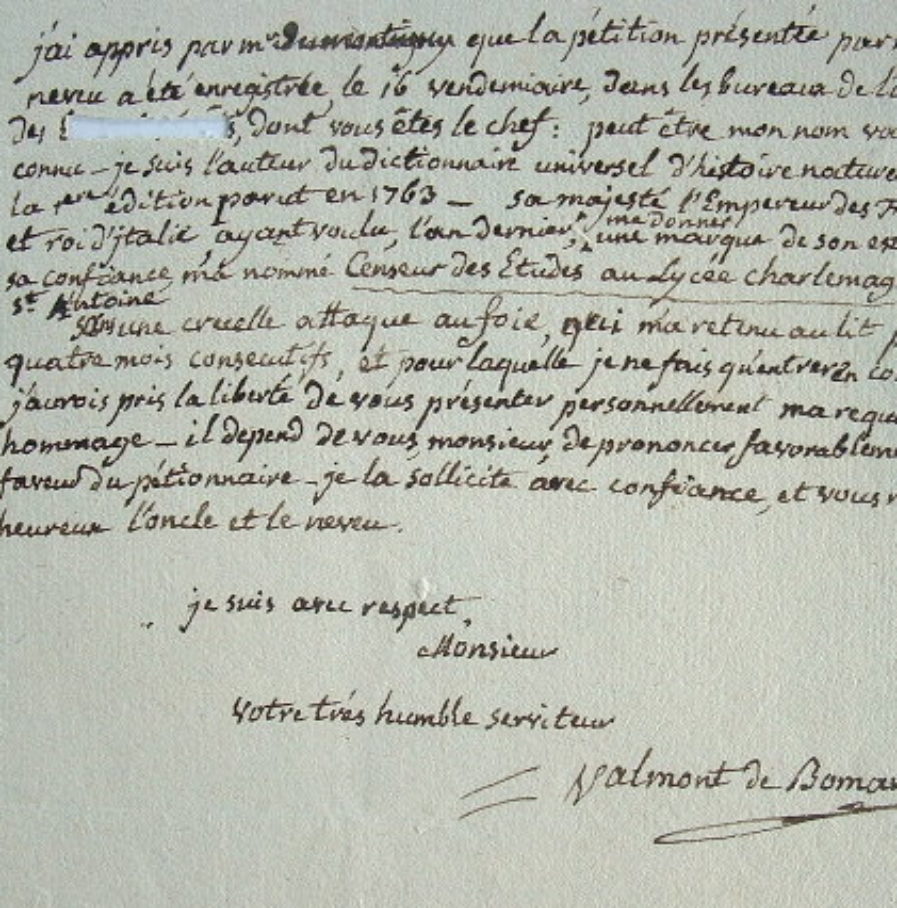 j'ai appris par mr que la pétition présentée par
neveu a été enregistrée, le 16 vendemiaire, dans les bureaux de
des dont vous êtes le chef: peut être mon nom
connu _ je suis l'auteur du dictionnaire universel d'histoire nature
la 1ere édition parut en 1763 _ sa majesté l'Empereur des
et roi d'jtalie ayant voulu, l'an dernier, me donner une marque de son
sa confiance, m'a nommé Censeur des Etudes au Lycée charlemag
st Antoine
une cruelle attaque au foie, qui m'a retenu au lit
quatre mois consecutifs, et pour laquelle je ne fais qu'entrer en
j'aurois pris la liberté de vous présenter personnellement ma
hommage _ il depend de vous, monsieur, de prononcer favorableme
faveur du pétionnaire _ je la sollicite avec confiance, et vous
heureux l'oncle et le neveu.
je suis avec respect,
Monsieur
votre trés humble serviteur
Valmont de Bomar